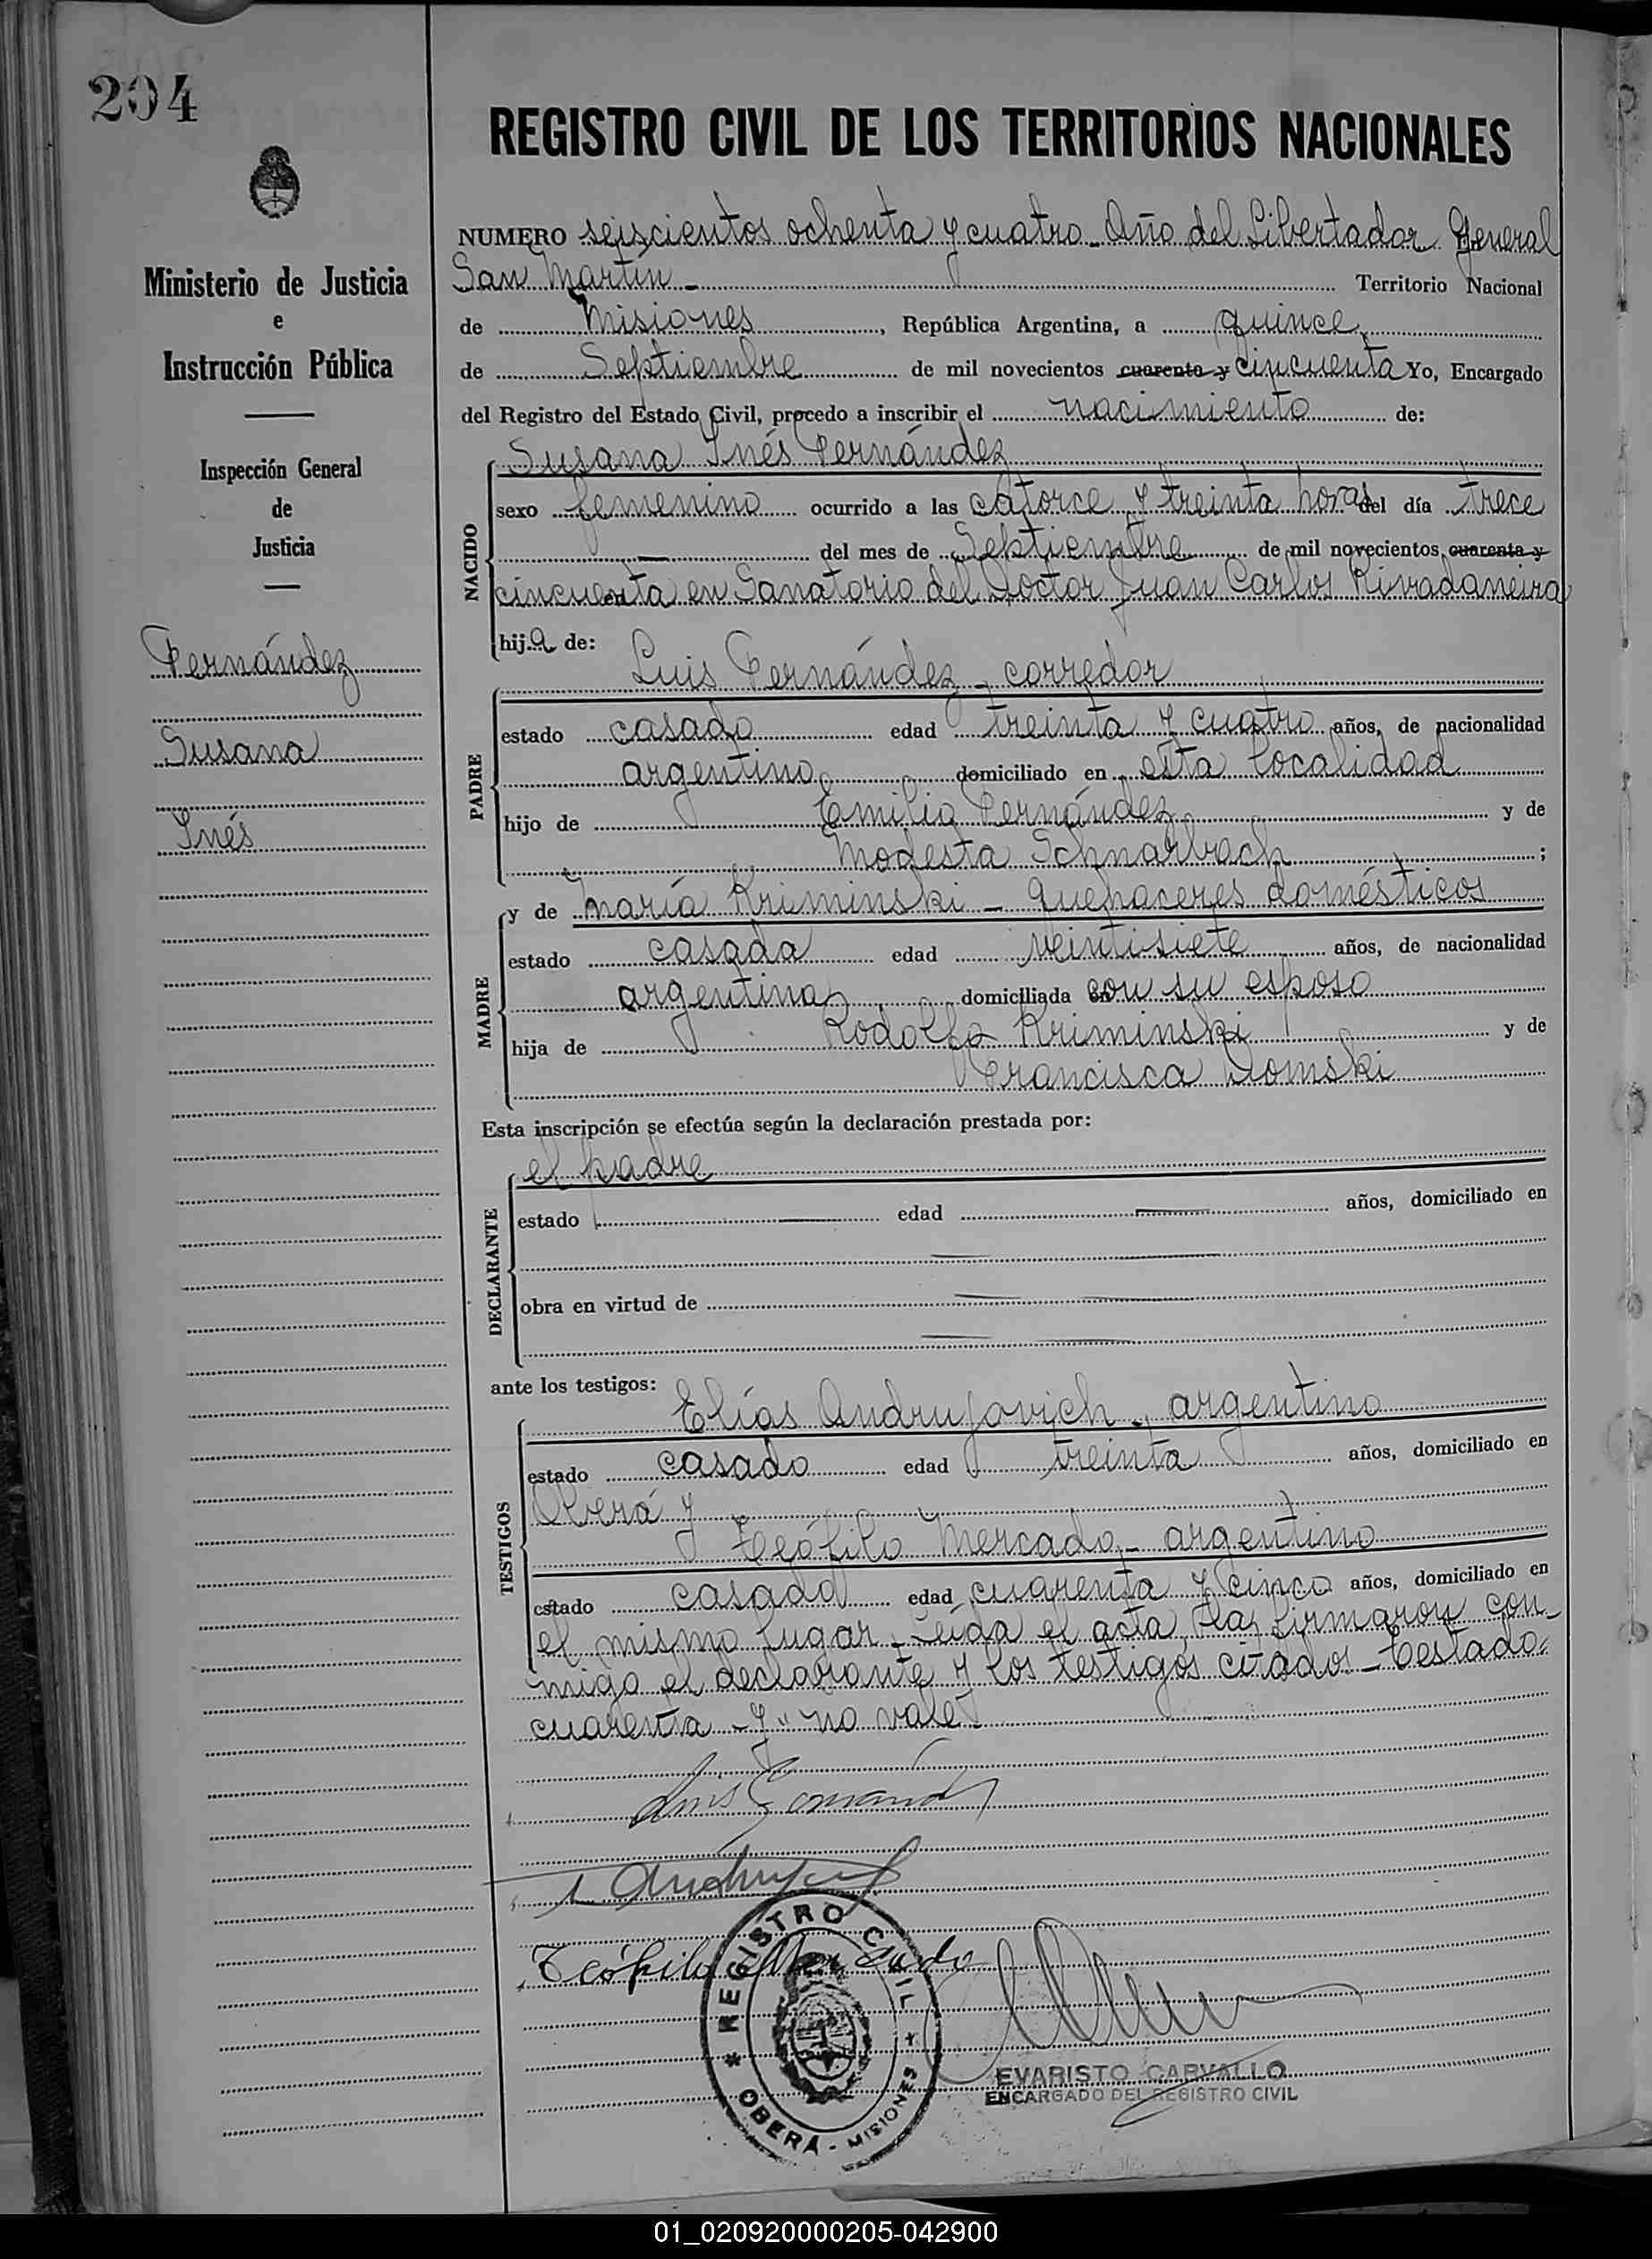 204
REGISTRO CIVIL DE LOS TERRITORIOS NACIONALES
Ministerio de Justicia
e
Instrucción Pública
Inspección General
de
Justicia
Fernández
Susana
Inés
NUMERO seiscientos ochenta y cuatro - Año del Libertador General
San Martín - Territorio Nacional
de Misiones, República Argentina, a quince
de Septiembre de mil novecientos cuarenta y cincuenta Yo, Encargado
del Registro del Estado Civil, procedo a inscribir el nacimiento de:
NACIDO
Susana Inés Fernández
sexo femenino ocurrido a las catorce y treinta horas del día trece
— del mes de Septiembre de mil novecientos cuarenta y
cincuenta en Sanatorio del Doctor Juan Carlos Rivadaneira
hija de:
PADRE
Luis Fernández - corredor
estado casado edad treinta y cuatro años, de nacionalidad
argentino domiciliado en esta localidad
hijo de Emilio Fernández y de
Modesta Schnarbach ;
MADRE
y de María Kriminski - quehaceres domésticos
estado casada edad veintisiete años, de nacionalidad
argentina domiciliada con su esposo
hija de Rodolfo Kriminski y de
Francisca Domski
Esta inscripción se efectúa según la declaración prestada por:
DECLARANTE
el padre
estado — edad — años, domiciliado en
obra en virtud de
ante los testigos:
TESTIGOS
Elías Andrujovich - argentino
estado casado edad treinta años, domiciliado en
Oberá y
Teófilo Mercado - argentino
estado casado edad cuarenta y cinco años, domiciliado en
el mismo lugar - Leída el acta, la firmaron con-
migo el declarante y los testigos citados - Testado:
cuarenta - y" no vale -
Luis Fernández
Teófilo Mercado
REGISTRO CIVIL
OBERÁ - MISIONES
EVARISTO CARVALLO
ENCARGADO DEL REGISTRO CIVIL
01_020920000205-042900